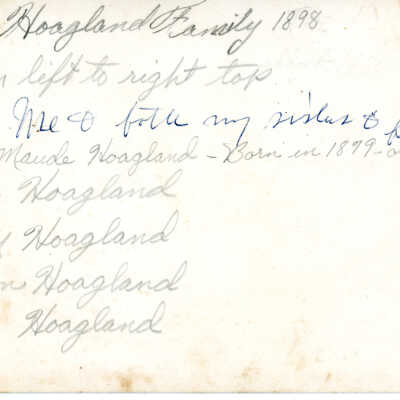 Hoagland Family 1898
left to right top
Me & both my sisters &
Maude Hoagland - Born in 1879 -
Hoagland
Hoagland
Hoagland
Hoagland